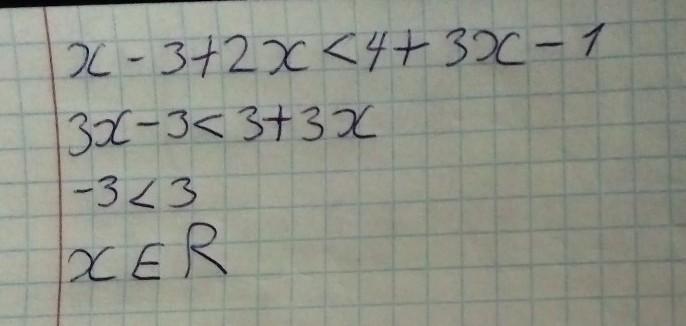 x - 3 + 2x < 4 + 3x - 1
3x - 3 < 3 + 3x
-3 < 3
x ∈ R